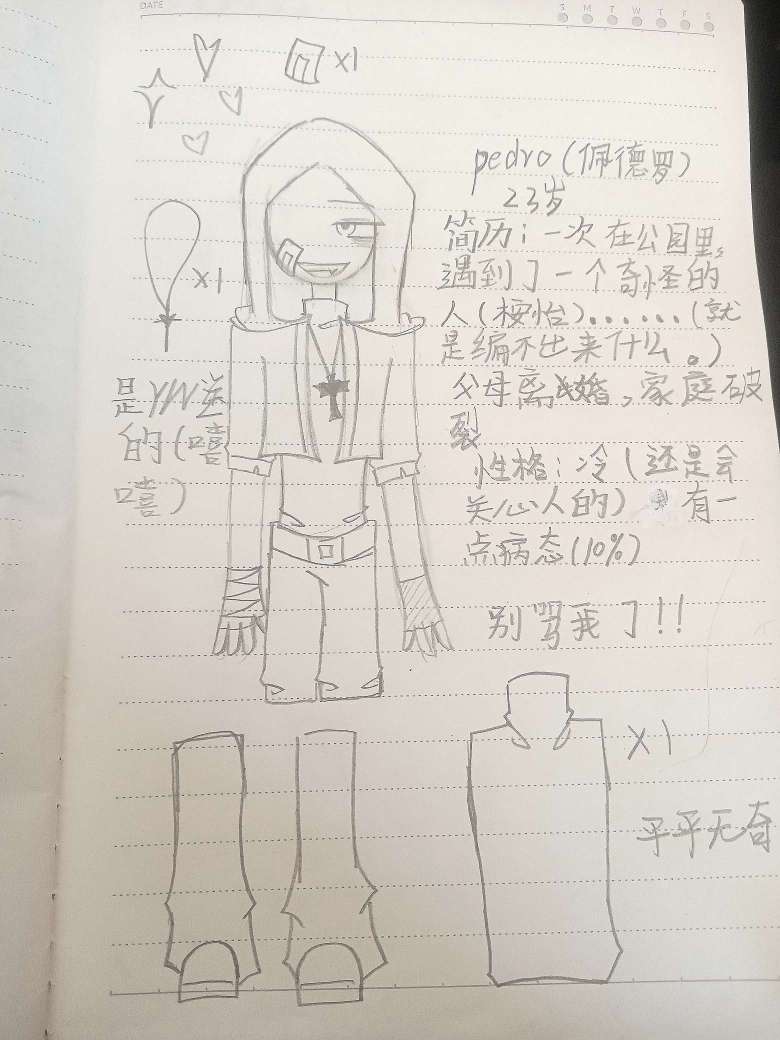 DATE
S M T W T F S
×1
pedro (佩德罗)
23岁
简历:一次在公园里,
遇到了一个奇怪的
人(桉怡)......(就
是编不出来什么。)
父母离婚,家庭破
裂
性格:冷(还是会
关心人的) 有一
点病态(10%)
别骂我了!!
×1
是YW差
的(嘻
嘻)
×1
平平无奇